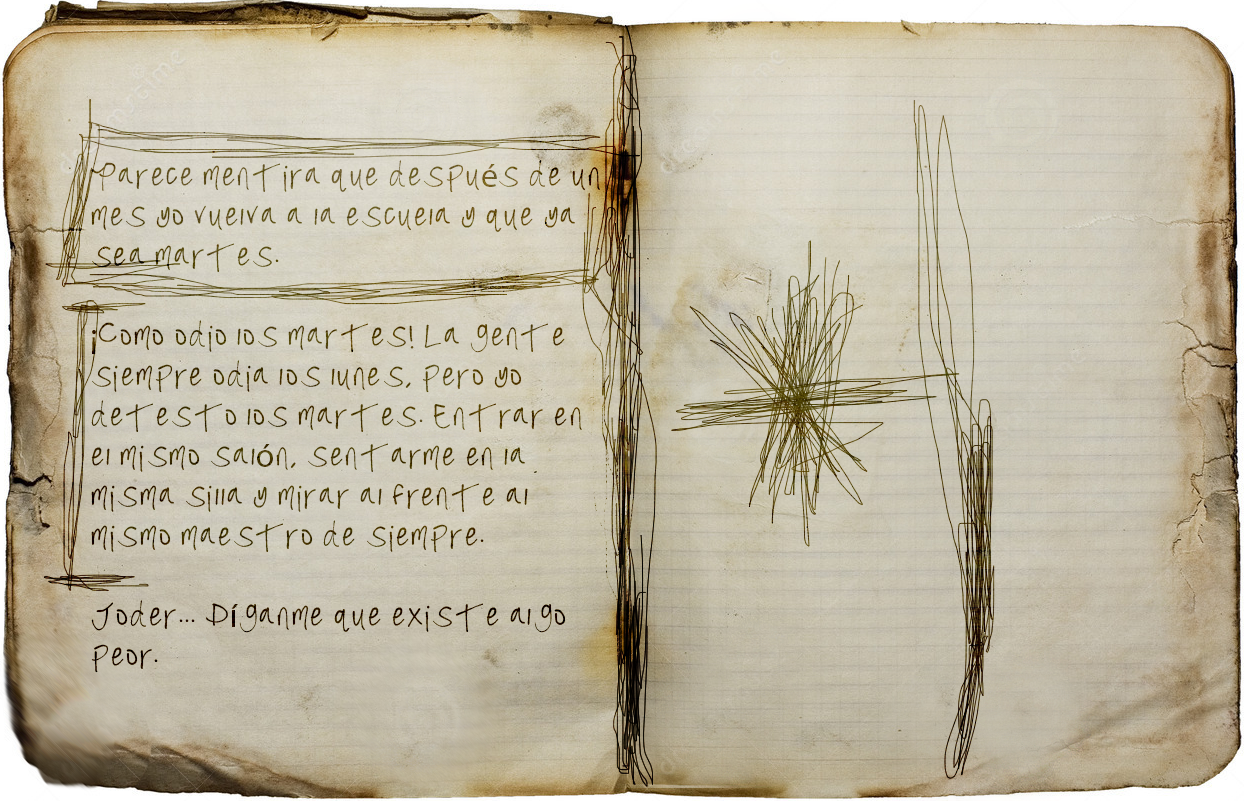 Parece mentira que después de un
mes yo vuelva a la escuela y que ya
sea martes.
¡Como odio los martes! La gente
siempre odia los lunes, pero yo
detesto los martes. Entrar en
el mismo salón, sentarme en la
misma silla y mirar al frente al
mismo maestro de siempre.
Joder... Díganme que existe algo
peor.